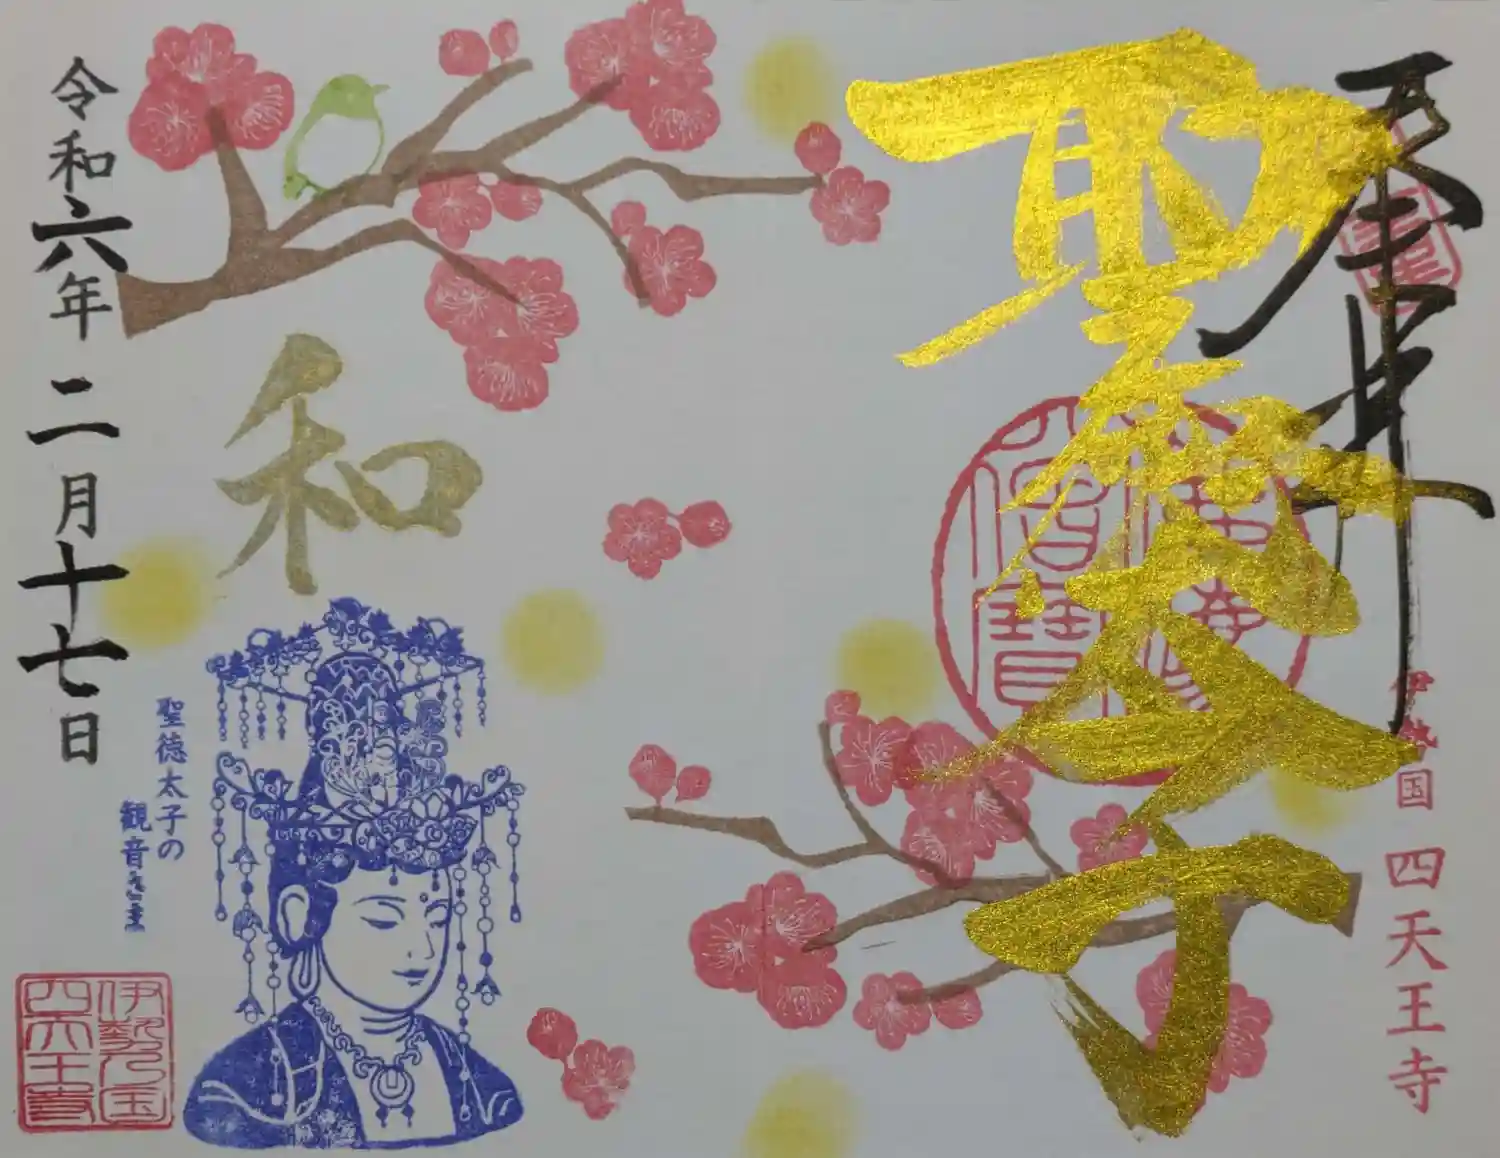 奉拝
聖徳太子
伊勢国 四天王寺
和
令和六年 二月十七日
聖徳太子の
観音さま
伊勢国
四天王寺